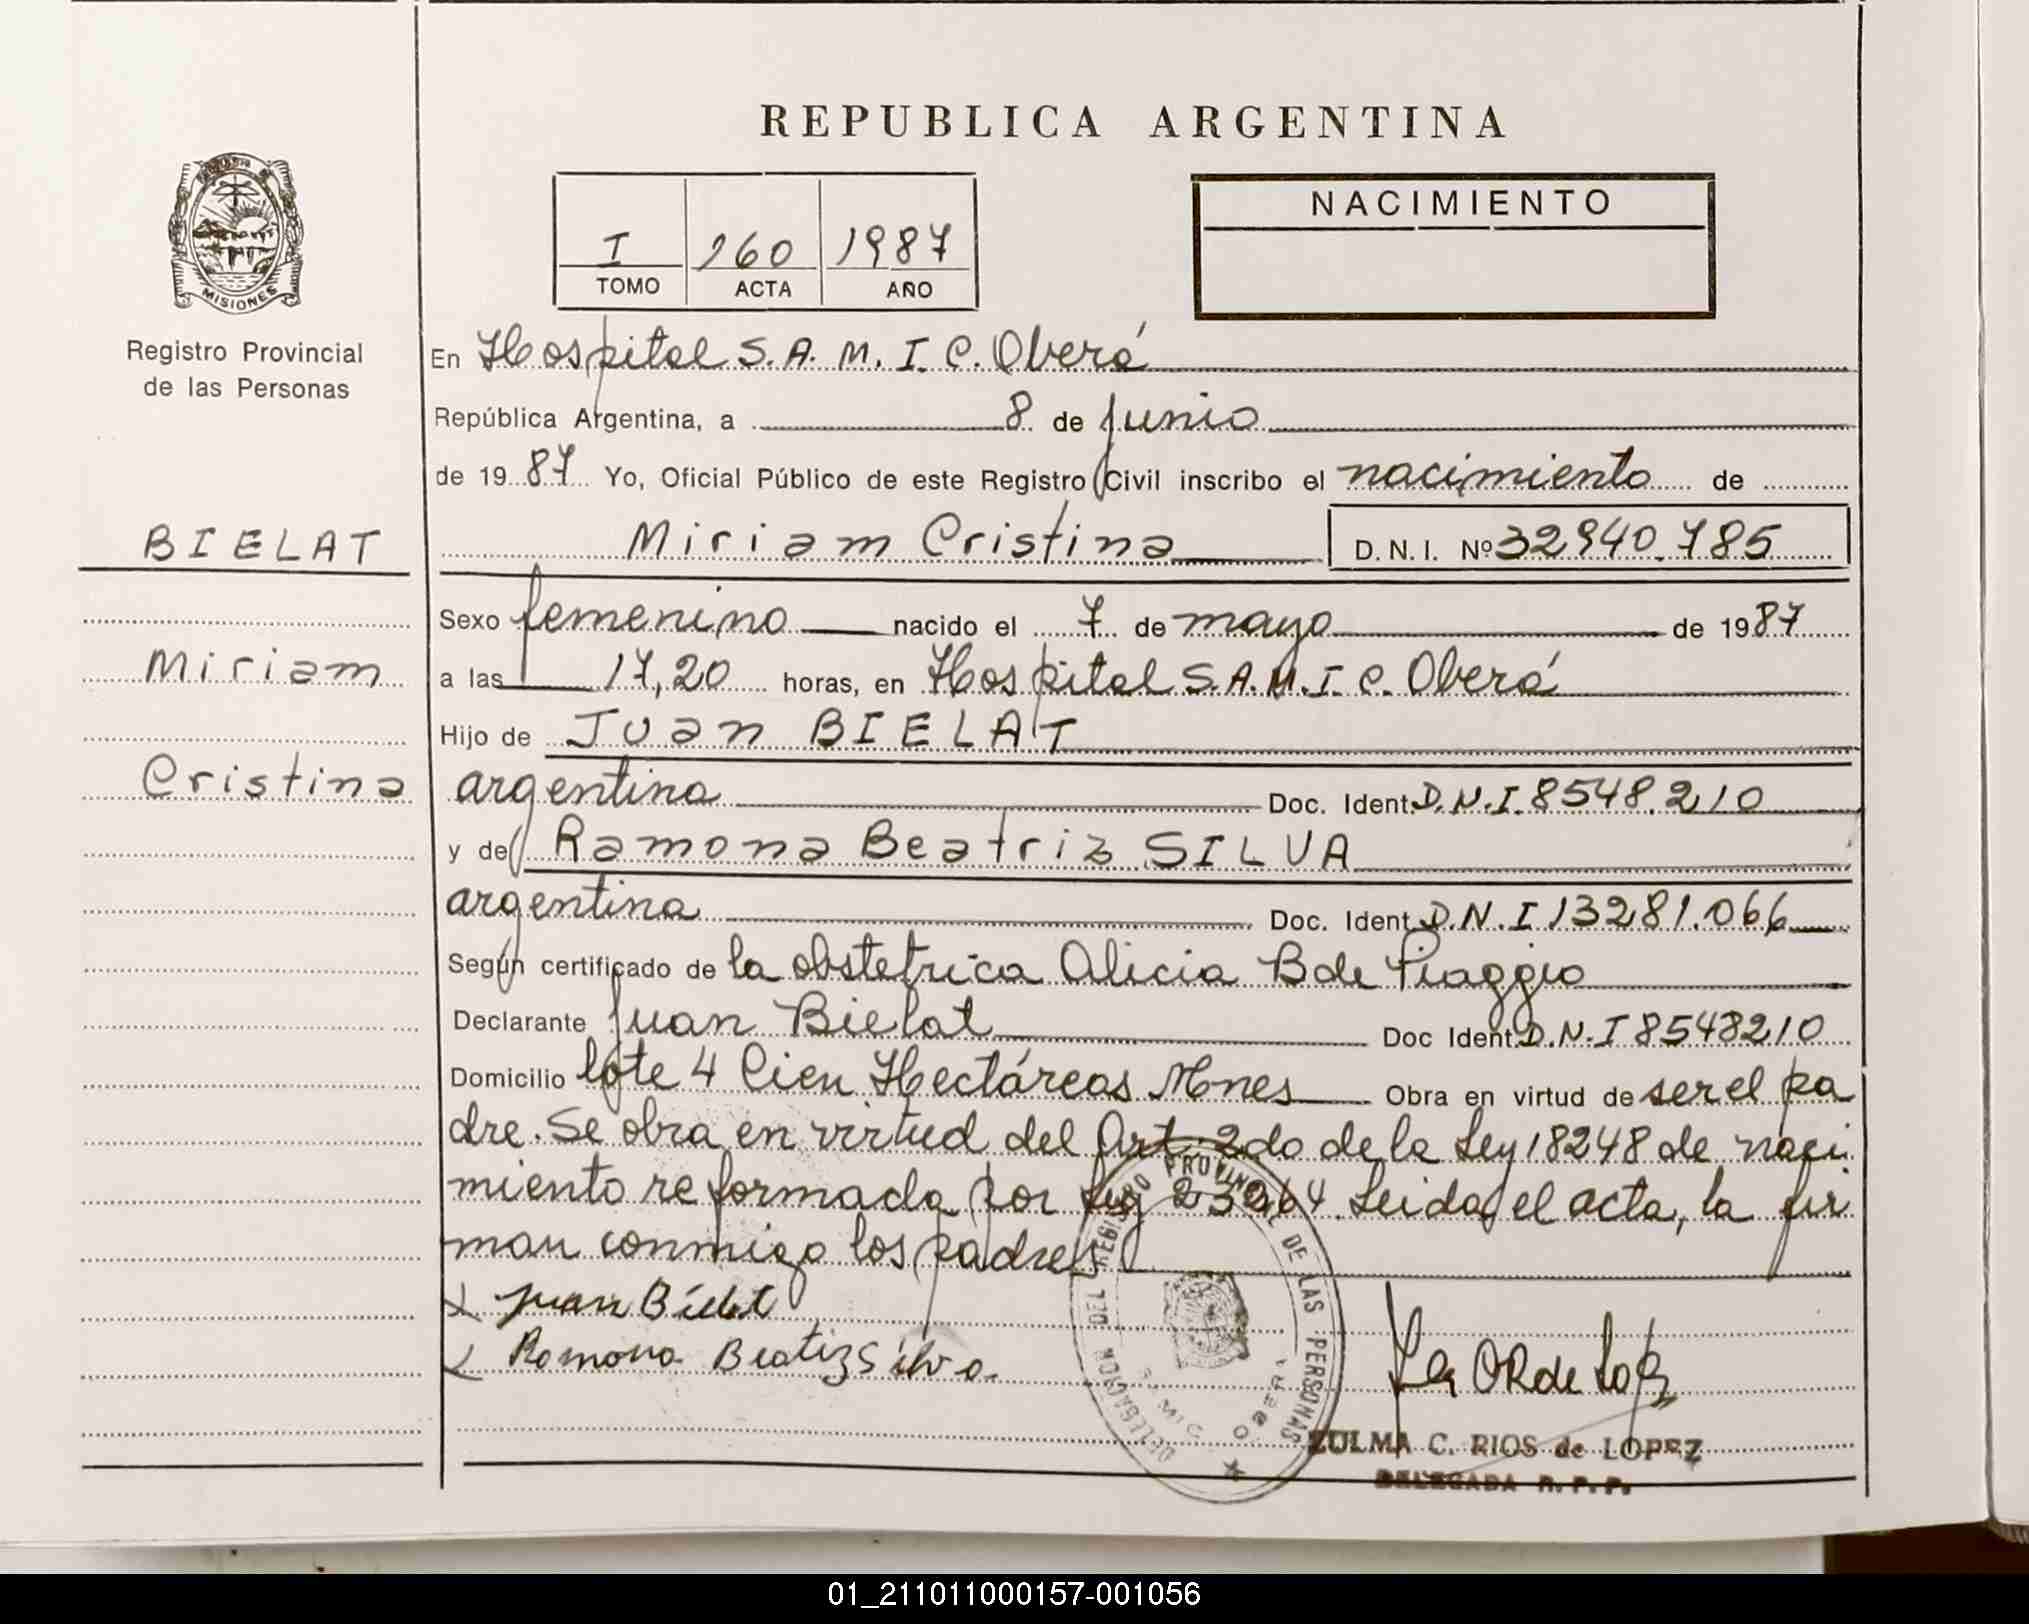 REPUBLICA ARGENTINA
NACIMIENTO
I 160 1987
TOMO ACTA AÑO
MISIONES
Registro Provincial
de las Personas
En Hospital S.A.M.I.C. Oberá
República Argentina, a 8 de junio
de 1987 Yo, Oficial Público de este Registro Civil inscribo el nacimiento de
BIELAT
Miriam Cristina D.N.I. Nº 32940.785
Sexo femenino nacido el 7 de mayo de 1987
Miriam
a las 17,20 horas, en Hospital S.A.M.I.C. Oberá
Hijo de Juan BIELAT
Cristina
argentina Doc. Ident. D.N.I. 8548.210
y de Ramona Beatriz SILVA
argentina Doc. Ident. D.N.I 13281.066
Según certificado de la obstetrica Alicia B de Piaggio
Declarante Juan Bielat Doc Ident. D.N.I 8548210
Domicilio lote 4 Cien Hectáreas Mnes Obra en virtud de ser el pa
dre. Se obra en virtud del Art. 2do de la Ley 18248 de naci
miento reformada por Ley 23264. Leida el acta, la fir
man conmigo los padres
Juan Bielat
Ramona Beatiz Silva
DELEGACION DEL REGISTRO PROVINCIAL DE LAS PERSONAS
OBERA
ZULMA C. RIOS de LOPEZ
DELEGADA R.P.P.
01_211011000157-001056